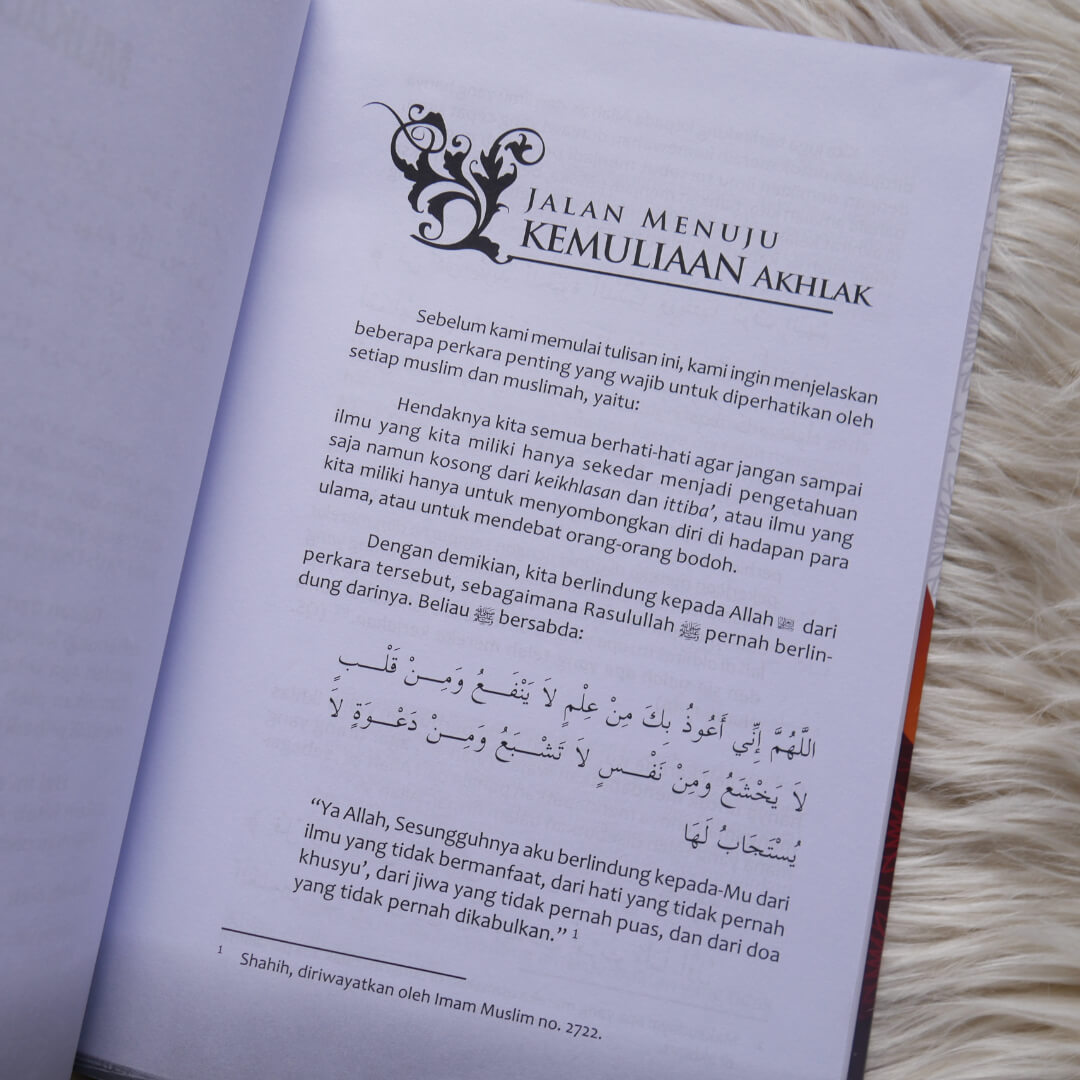 JALAN MENUJU
KEMULIAAN AKHLAK
Sebelum kami memulai tulisan ini, kami ingin menjelaskan
beberapa perkara penting yang wajib untuk diperhatikan oleh
setiap muslim dan muslimah, yaitu:
Hendaknya kita semua berhati-hati agar jangan sampai
ilmu yang kita miliki hanya sekedar menjadi pengetahuan
saja namun kosong dari keikhlasan dan ittiba’, atau ilmu yang
kita miliki hanya untuk menyombongkan diri di hadapan para
ulama, atau untuk mendebat orang-orang bodoh.
Dengan demikian, kita berlindung kepada Allah dari
perkara tersebut, sebagaimana Rasulullah ﷺ pernah berlin-
dung darinya. Beliau ﷺ bersabda:
اللَّهُمَّ إِنِّي أَعُوذُ بِكَ مِنْ عِلْمٍ لاَ يَنْفَـــعُ وَمِـــنْ قَلْـــبٍ
لاَ يَخْشَعُ وَمِنْ نَفْـــسٍ لاَ تَشْـــبَعُ وَمِـــنْ دَعْـــوَةٍ لاَ
يُسْتَجَابُ لَهَا
“Ya Allah, Sesungguhnya aku berlindung kepada-Mu dari
ilmu yang tidak bermanfaat, dari hati yang tidak pernah
khusyu’, dari jiwa yang tidak pernah puas, dan dari doa
yang tidak pernah dikabulkan.” 1
1 Shahih, diriwayatkan oleh Imam Muslim no. 2722.